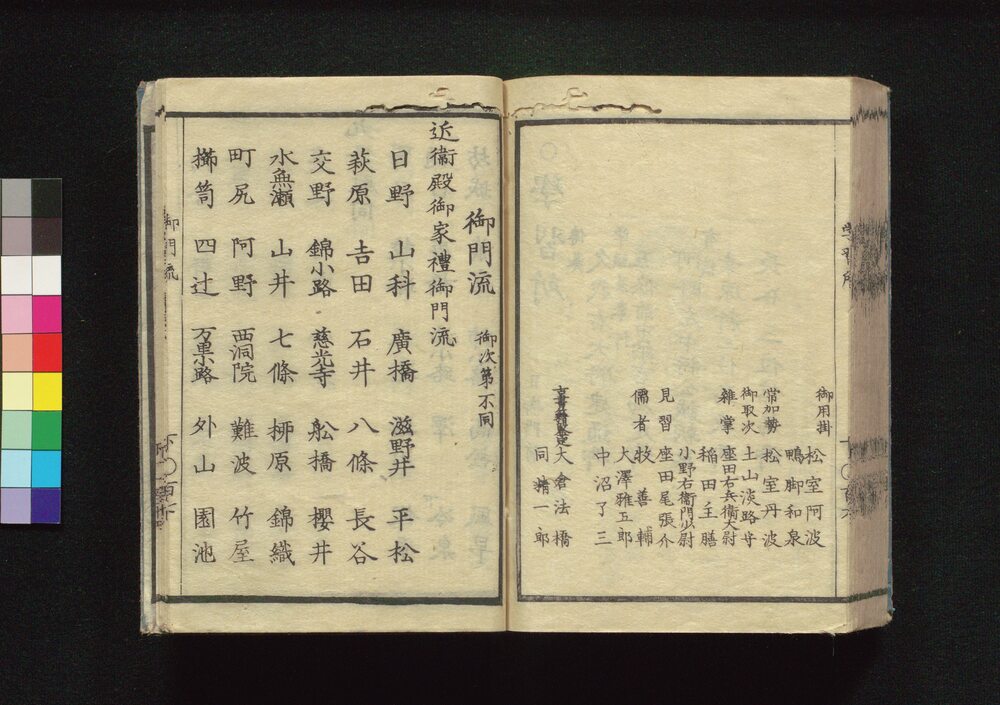 御用掛 松室阿波
鴨脚和泉
常加勢 松室丹波
御取次 土山淡路守
雜掌 座田右兵衞大尉
稲田主膳
小野右衞門少尉
見習 座田尾張介
儒者 牧善輔
大澤雅五郎
中沼了三
大倉法橋
同精一郎
御門流 御次第不同
近衞殿御家禮御門流
日野 山科 廣橋 滋野井 平松
萩原 吉田 石井 八條 長谷
交野 錦小路 慈光寺 舩橋 櫻井
水無瀬 山井 七條 栁原 錦織
町尻 阿野 西洞院 難波 竹屋
櫛笥 四辻 万里路 外山 園池
御門流